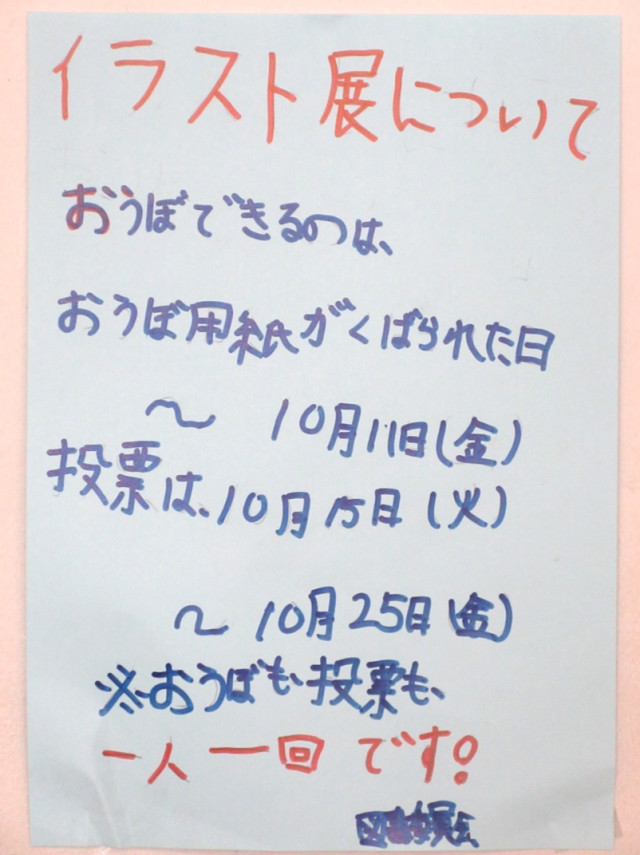 イラスト展について
おうぼできるのは、
おうぼ用紙がくばられた日
〜 10月11日(金)
投票は、10月15日(火)
〜 10月25日(金)
※おうぼも投票も、
一人一回です!